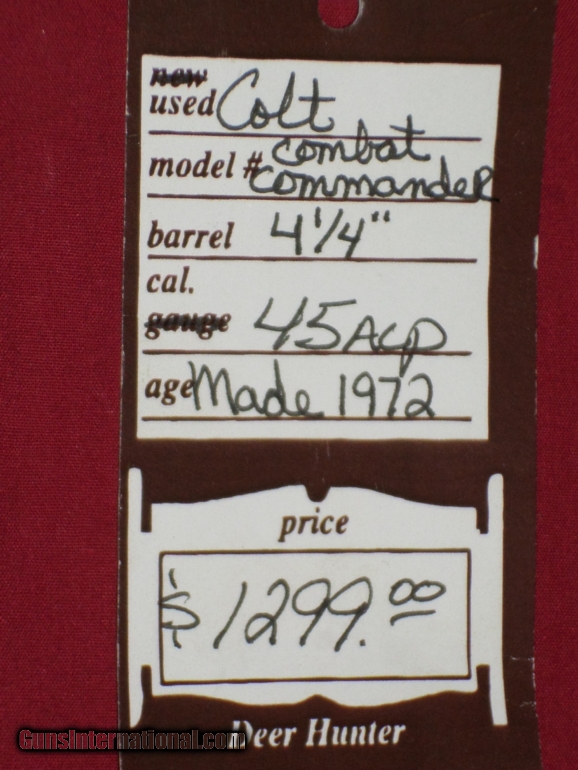 new
used Colt
model # combat
commander
barrel 4 1/4"
cal.
gauge 45 ACP
age Made 1972
price
$1299.00
Deer Hunter
GunsInternational.com